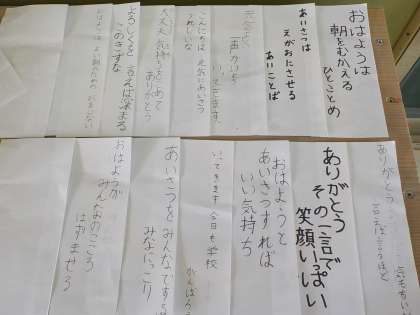 おはようは
朝をむかえる
ひとことめ
あいさつは
えがおにさせる
あいことば
元気よく
一声かけて
いってきます
こんにちは 元気にあいさつ
うれしいな
大丈夫 気持ちをこめて
ありがとう
よろしくを 言えば深まる
このきずな
おはようは
ありがとう
ありがとう
その一言で
笑顔いっぱい
おはようと
あいさつすれば
いい気持ち
いってきます 今日も学校
がんばろう
あいさつを みんなですれば
みなにっこり
おはようが
みんなのこころ
はずませる